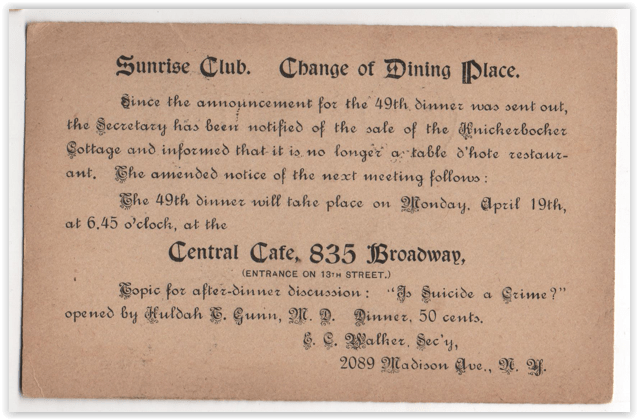 Sunrise Club. Change of Dining Place.
Since the announcement for the 49th dinner was sent out,
the Secretary has been notified of the sale of the Knickerbocker
Cottage and informed that it is no longer a table d'hote restaur-
ant. The amended notice of the next meeting follows:
The 49th dinner will take place on Monday, April 19th,
at 6.45 o'clock, at the
Central Cafe, 835 Broadway,
(ENTRANCE ON 13TH STREET.)
Topic for after-dinner discussion: "Is Suicide a Crime?"
opened by Huldah T. Gunn, M. D. Dinner, 50 cents.
E. C. Walker, Sec'y,
2089 Madison Ave., N. Y.